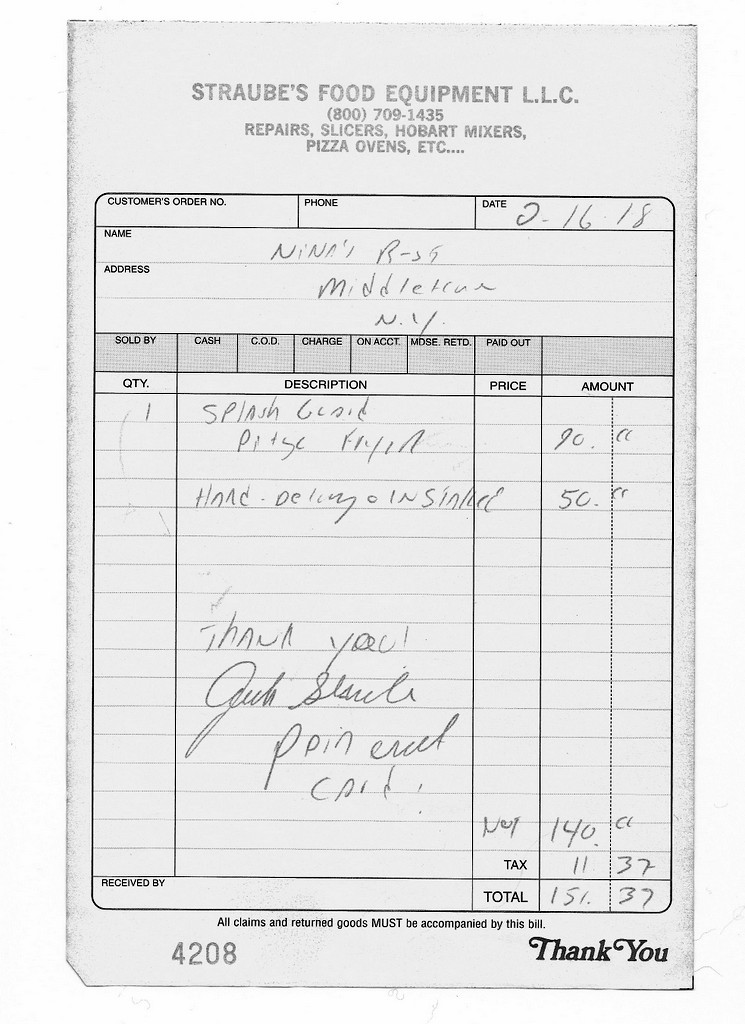 STRAUBE'S FOOD EQUIPMENT L.L.C.
(800) 709-1435
REPAIRS, SLICERS, HOBART MIXERS,
PIZZA OVENS, ETC....
CUSTOMER'S ORDER NO. PHONE DATE 2-16-18
NAME NiNA's R-st
ADDRESS Middletown
N.Y.
SOLD BY CASH C.O.D. CHARGE ON ACCT. MDSE. RETD. PAID OUT
QTY. DESCRIPTION PRICE AMOUNT
1 SPlAsh Guard
Fryer 90.
HAnd - Delivery INSTAlled 50.
THANK you!
PAid
CArd!
Net 140.
TAX 11 37
RECEIVED BY
TOTAL 151. 37
All claims and returned goods MUST be accompanied by this bill.
4208 Thank You